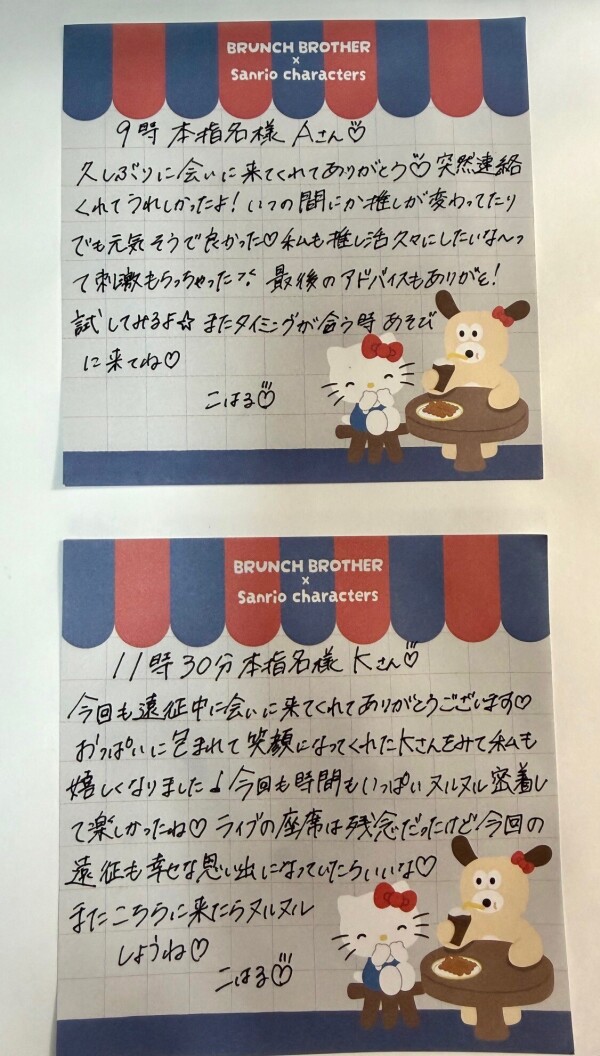 BRUNCH BROTHER
×
Sanrio characters
9時 本指名様 Aさん♡
久しぶりに会いに来てくれてありがとう♡突然連絡
くれてうれしかったよ！いつの間にか推しが変わってたり
でも元気そうで良かった♡私も推し活久々にしたいな〜っ
て刺激もらっちゃった 最後のアドバイスもありがと！
試してみるよ☆またタイミングが合う時あそび
に来てね♡
こはる♡
BRUNCH BROTHER
×
Sanrio characters
11時30分本指名様 Kさん♡
今回も遠征中に会いに来てくれてありがとうございます♡
おっぱいに包まれて笑顔になってくれたKさんをみて私も
嬉しくなりました♪今回も時間もいっぱいヌルヌル密着し
て楽しかったね♡ライブの座席は残念だったけど今回の
遠征も幸せな思い出になっていたらいいな♡
またこちらに来たらヌルヌル
しようね♡
こはる♡